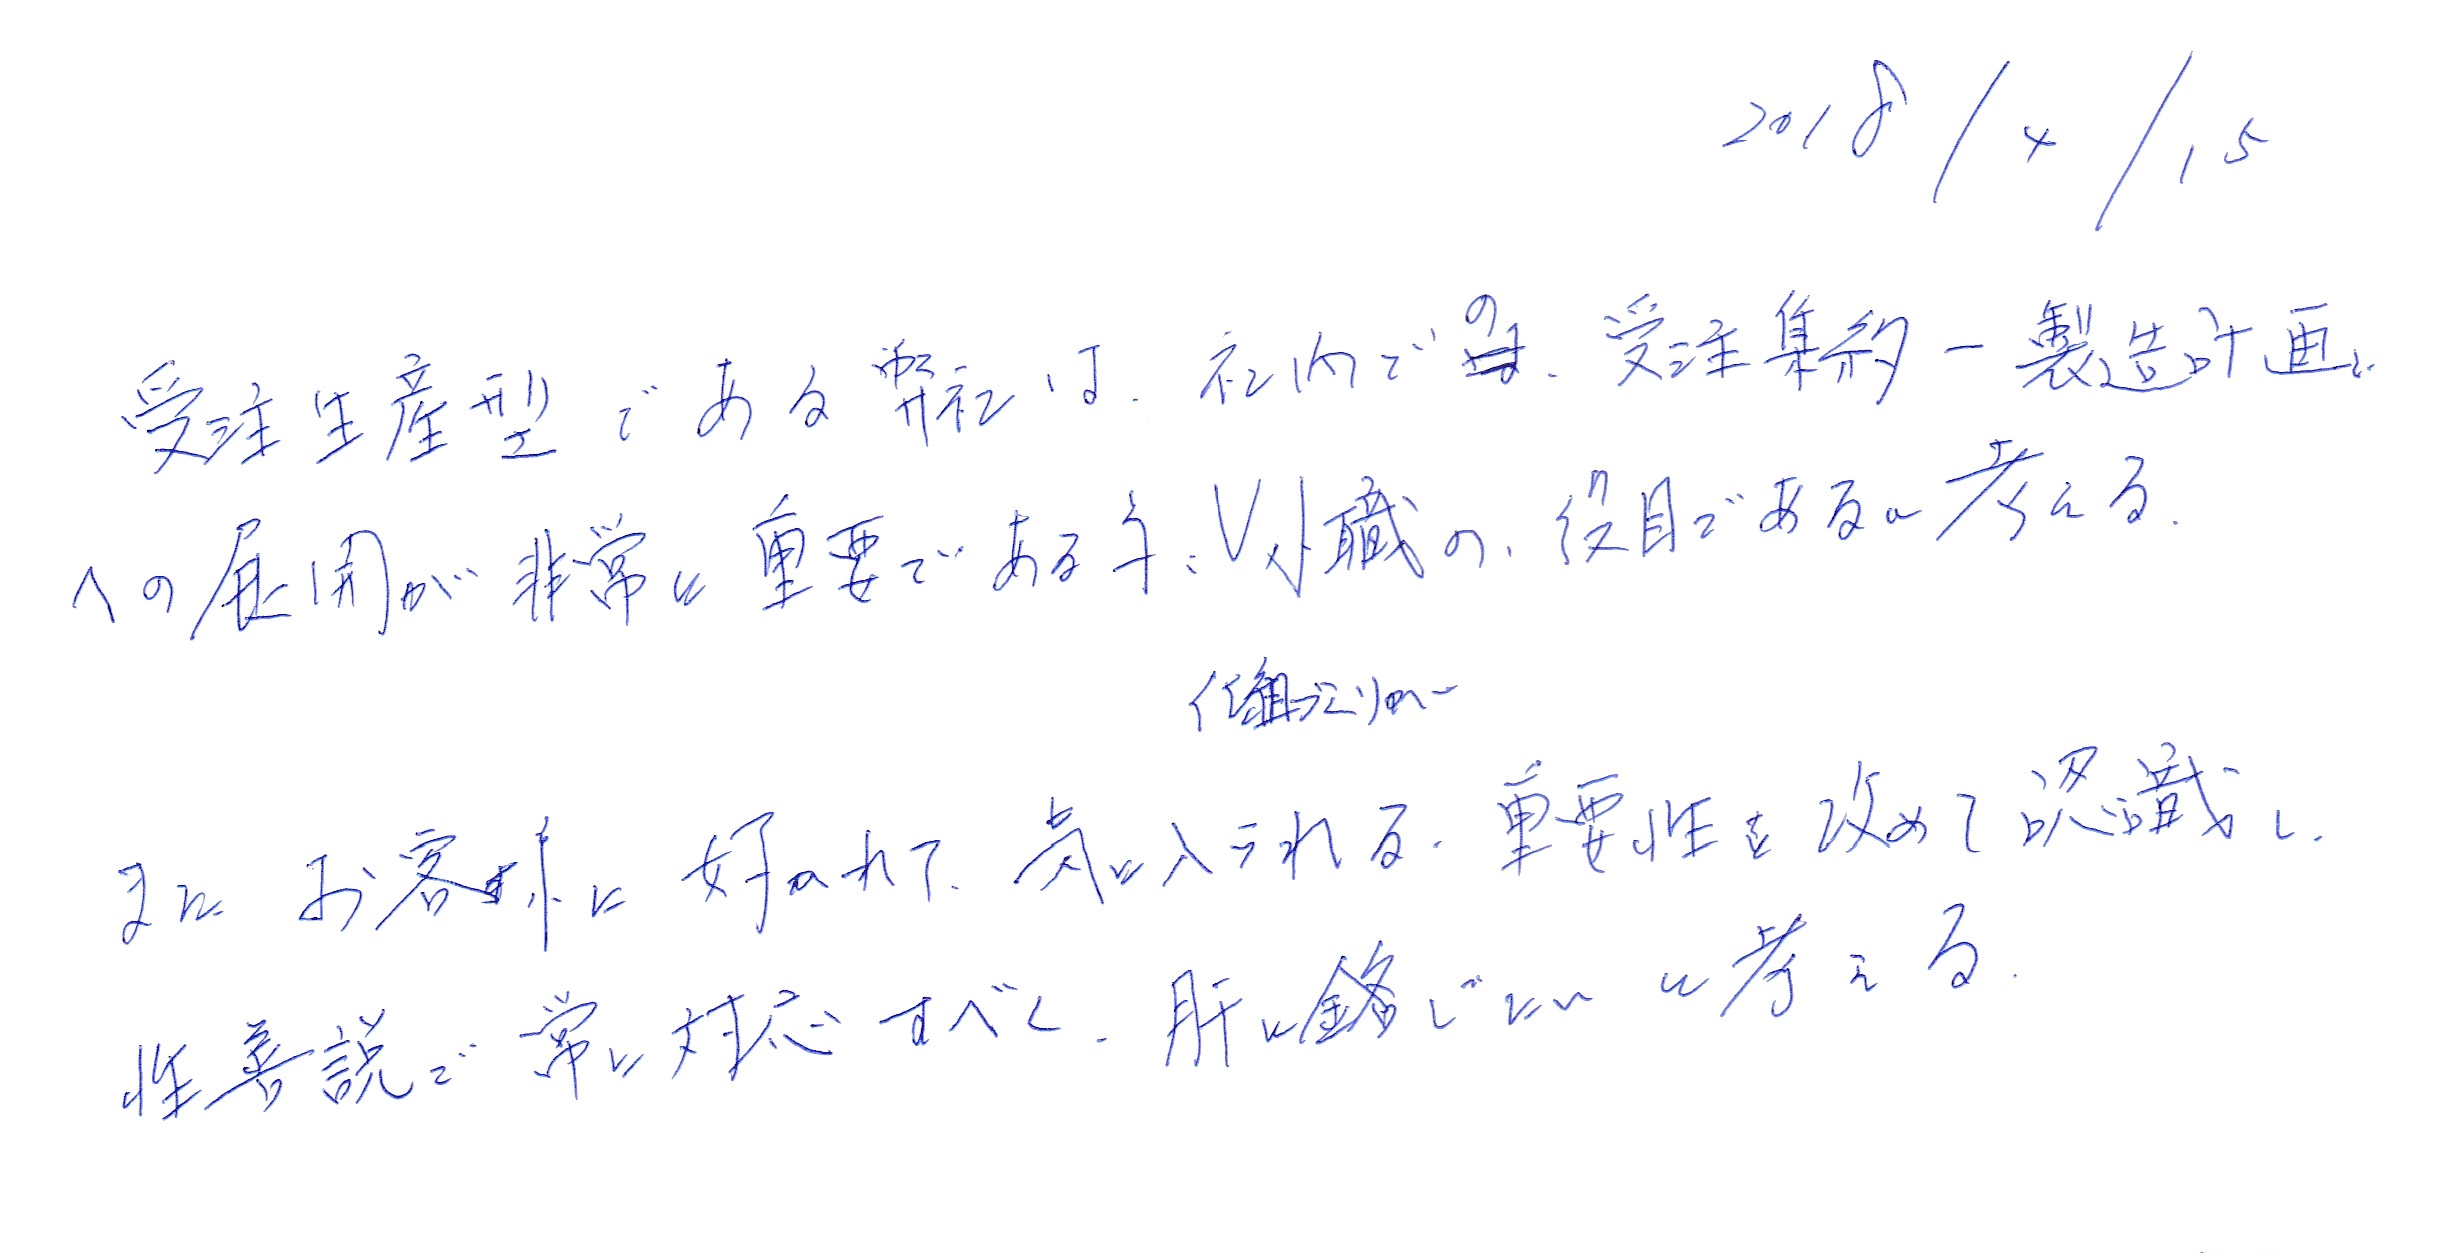 2018/4/15
受注生産型である弊社は、社内での、受注集約ー製造計画
への展開が非常に重要である
職の、役目であると考える。
また お客様に好かれて、気に入られる、重要性を改めて認識し、
性善説で常に対応すべく、肝に銘じたいと考える。